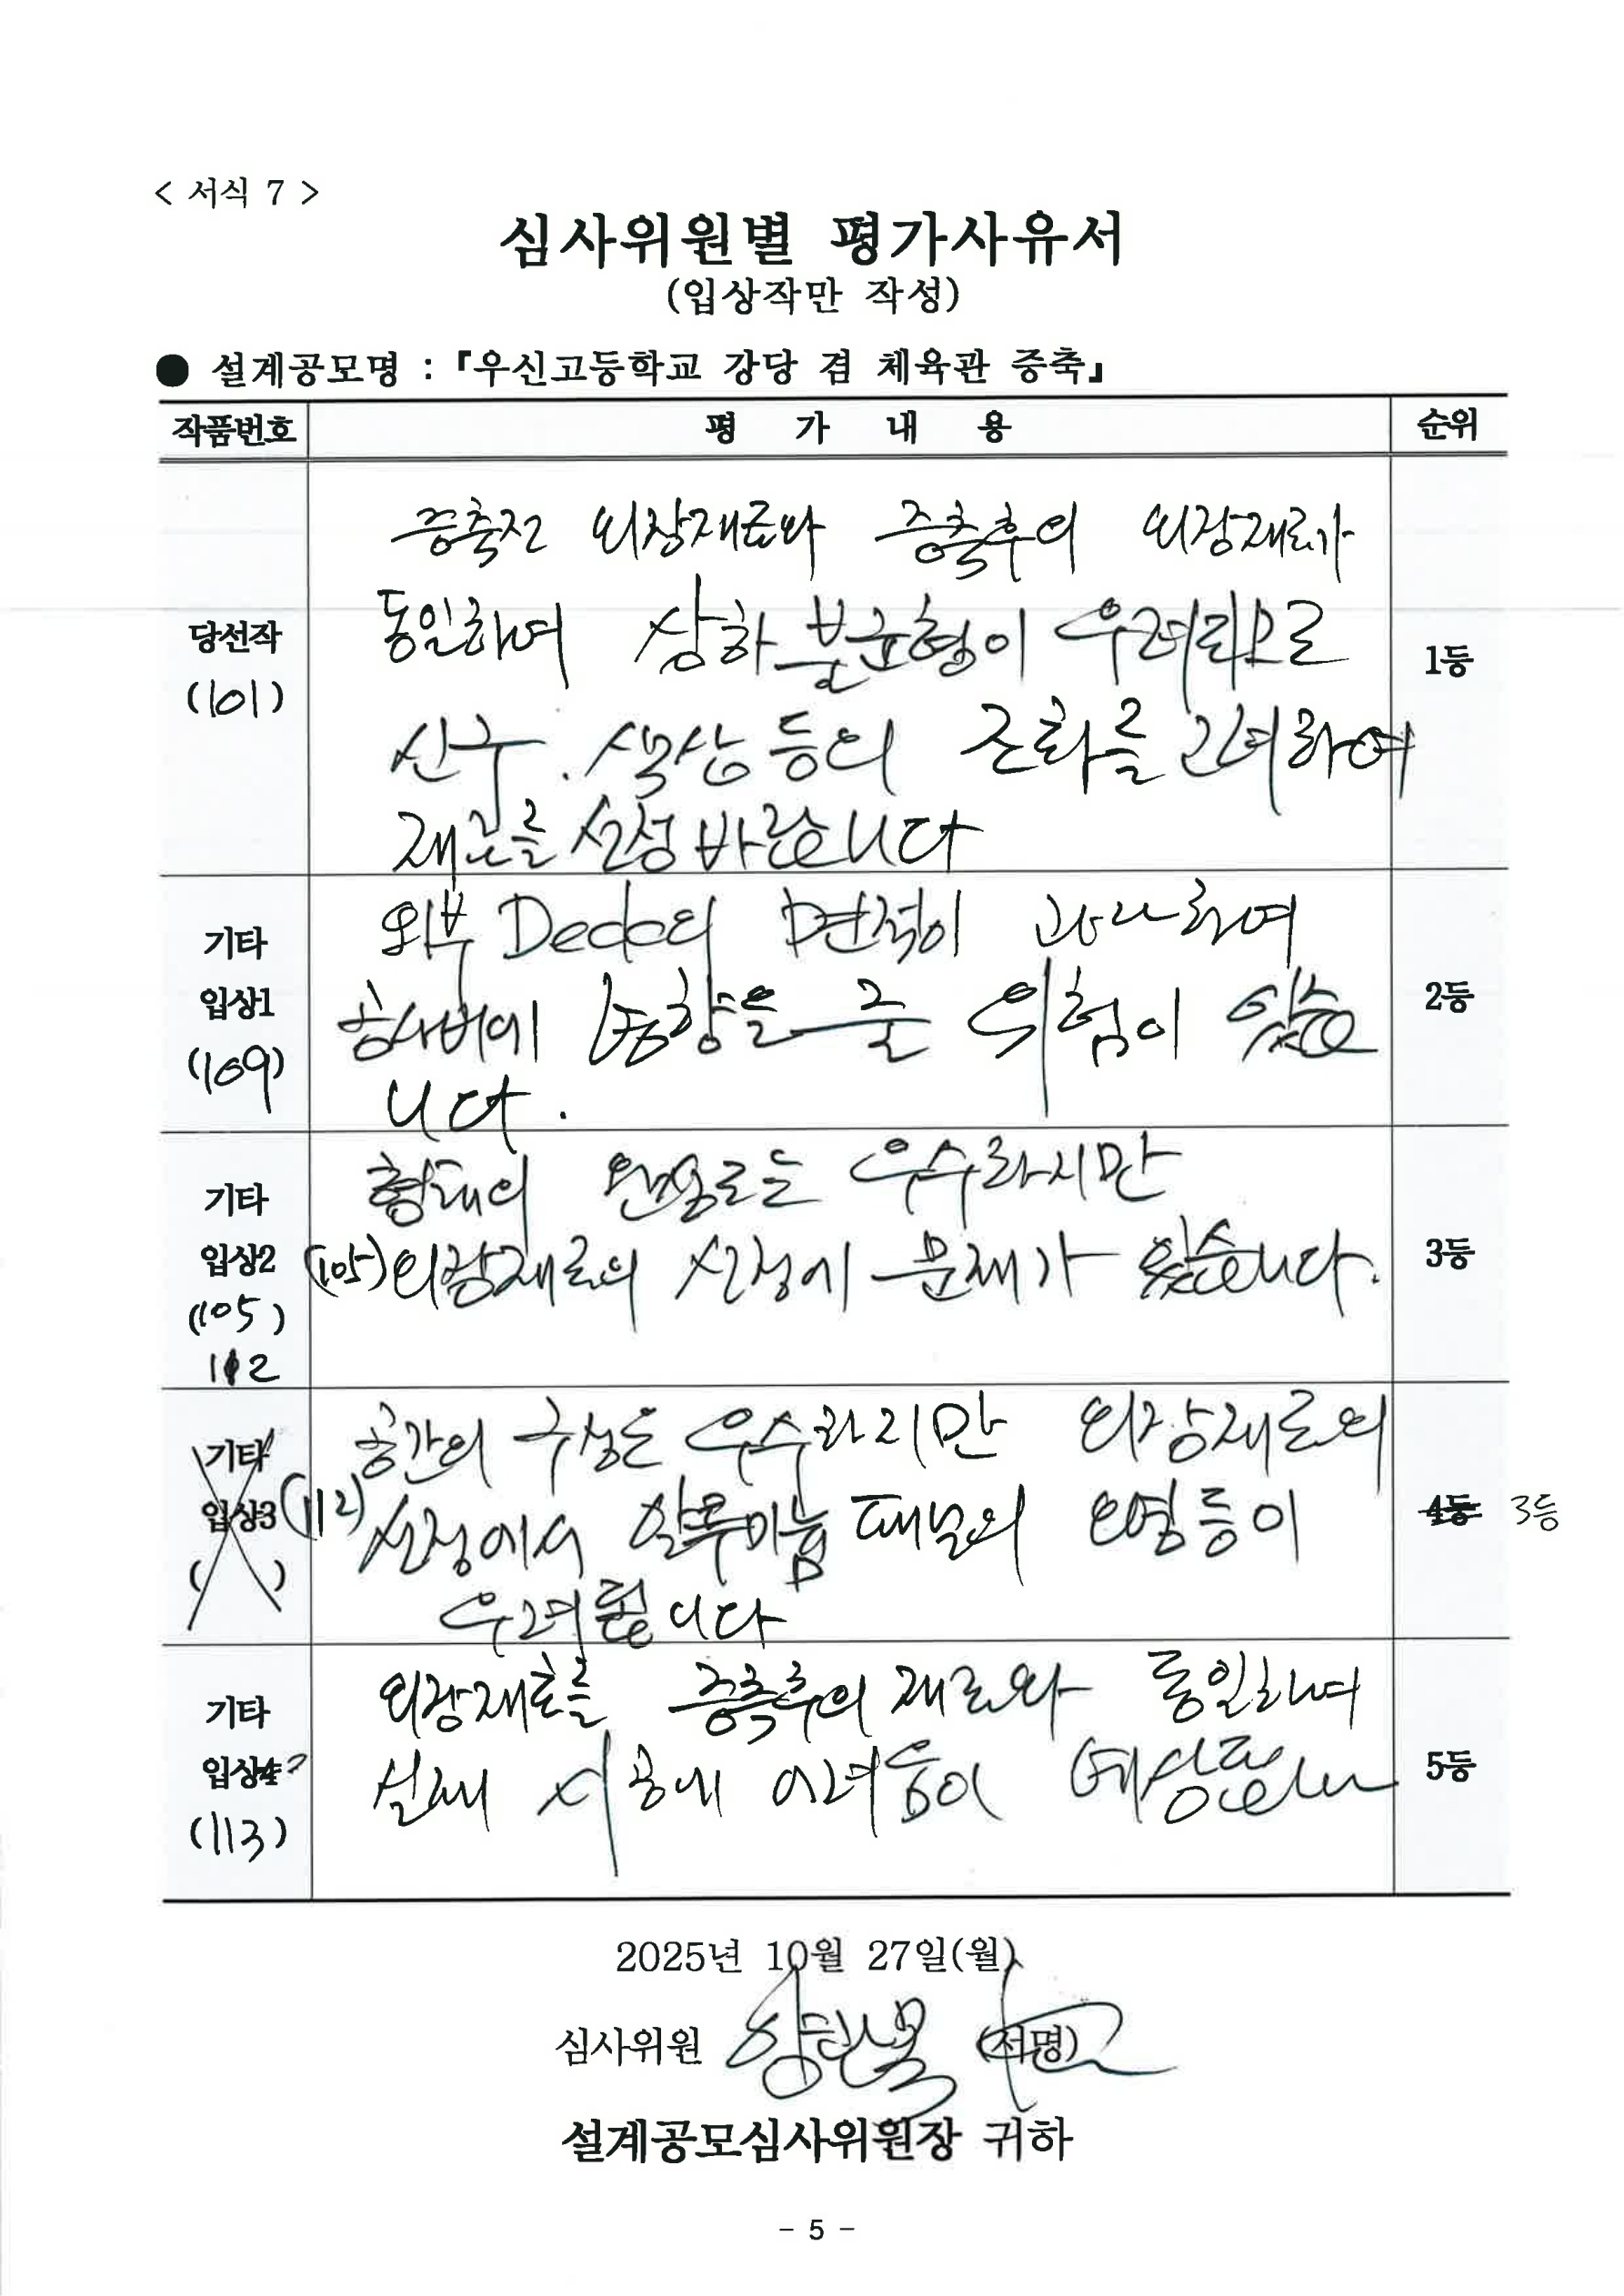 < 서식 7 >
심사위원별 평가사유서
(입상작만 작성)
● 설계공모명 : 『우신고등학교 강당 겸 체육관 증축』
작품번호 평 가 내 용 순위
당선작
(101)
증축전 외장재료와 증축후의 외장재료가
동일하여 상하 불균형이 우려되므로
신구. 색상 등의 조화를 고려하여
재료를 선정 바랍니다
1등
기타
입상1
(109)
외부 Deck의 면적이 과다하여
공사비에 영향을 줄 위험이 있습
니다.
2등
기타
입상2
(105)
112
형태의 완성도는 우수하지만
(105) 외장재료의 선정에 문제가 있습니다.
3등
기타
입상3
( )
공간의 구성은 우수하지만 외장재료의
(112) 선정에서 알루미늄 패널의 오염 등이
우려됩니다
4등 3등
기타
입상4
(113)
외장재료를 증축후의 재료와 동일하여
실제 시공에 어려움이 예상됩니다
5등
2025년 10월 27일(월)
심사위원 (서명)
설계공모심사위원장 귀하
- 5 -